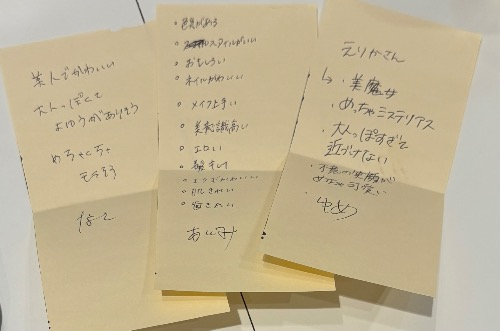 美人でかわいい
大人っぽくて
よゆうがありそう
めちゃくちゃ
モテそう
なで
色気がある
スタイルがいい
おもしろい
ネイルかわいい
メイク上手い
美意識高い
エロい
髪キレイ
肌きれい
あいみ
えりかさん
↳・美魔女
・めっちゃミステリアス
・大人っぽすぎて
近づけない
・不意の笑顔が
めっちゃ可愛い
ゆめ